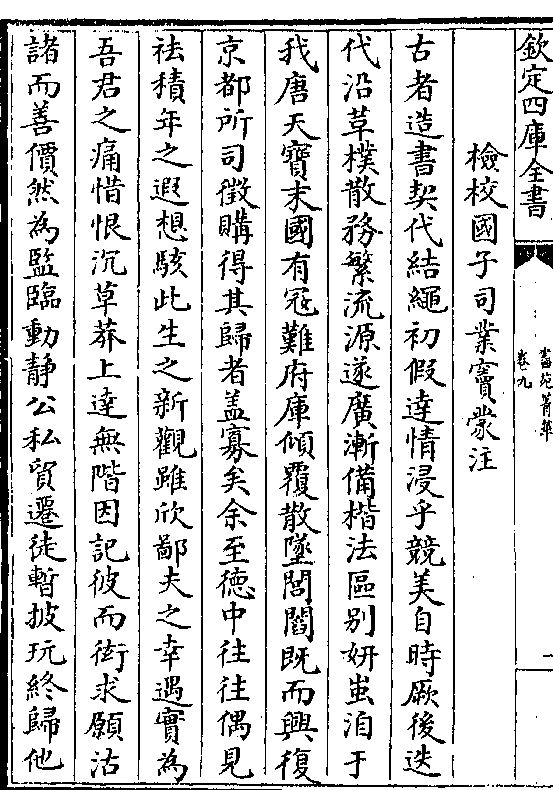 欽定四庫全書
書苑菁華
卷九
一
檢校國子司業竇蒙注
古者造書契代結繩初假達情浸乎競美自時厥後迭
代沿草樸散務繁流源遂廣漸備楷法區别妍蚩洎于
我唐天寶末國有冦難府庫傾覆散墜閭閻既而興復
京都所司徵購得其歸者盖寡矣余至徳中往往偶見
祛積年之遐想駭此生之新觀雖欣鄙夫之幸遇實為
吾君之痛惜恨沉草莽上達無階因記彼而衒求願沽
諸而善價然為監臨動静公私貿遷徒暫披玩終歸他